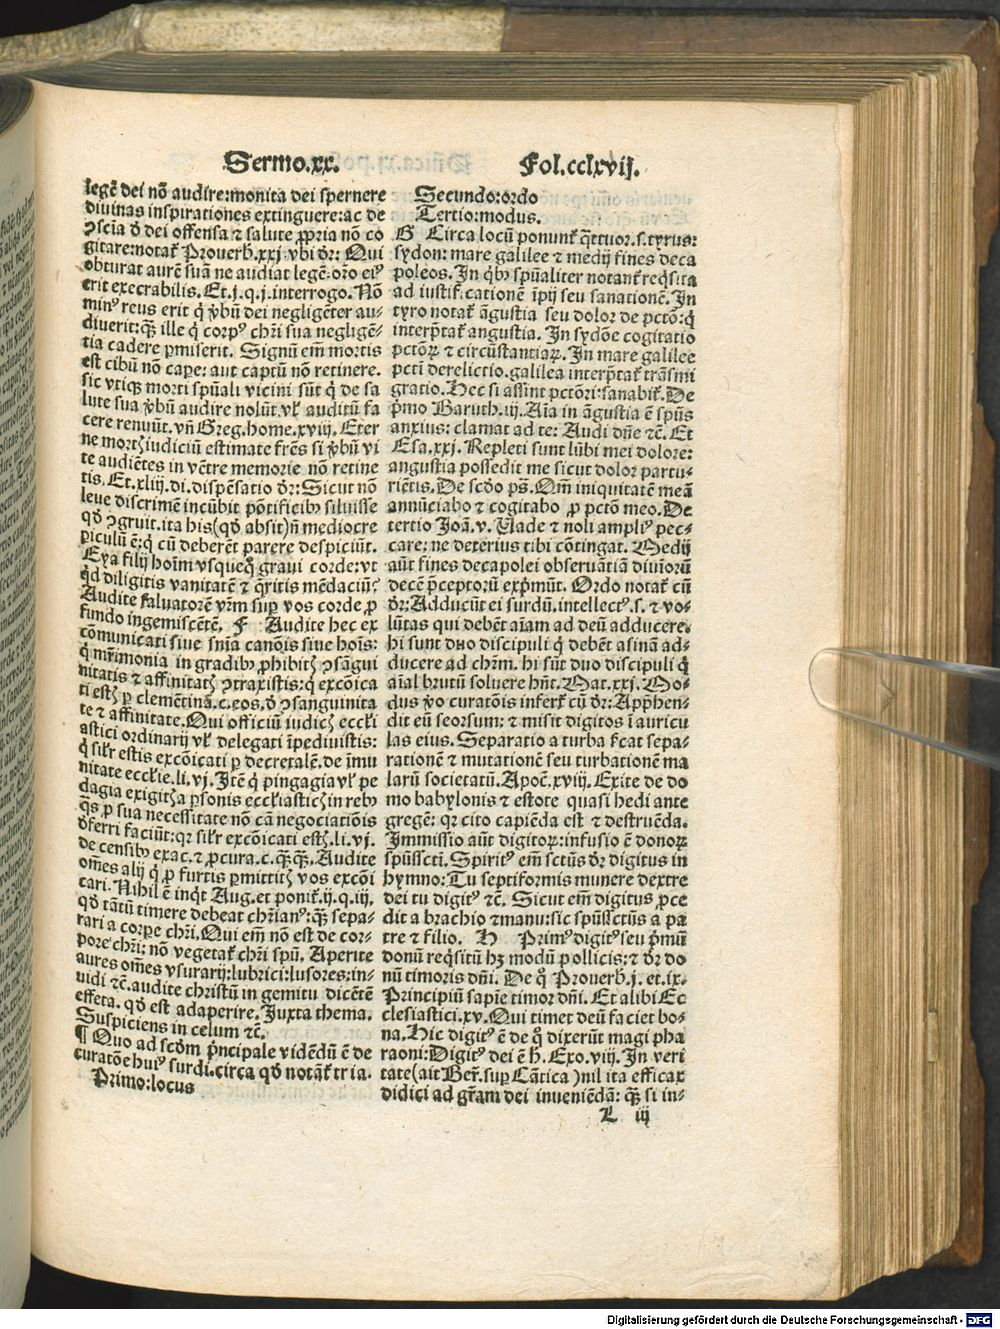 Sermo.xx.
Fol.cclxvij.
legē dei nō audire:monita dei spernere
diuinas inspirationes extinguere:ac de
ꝯscia ꝺ dei offensa ⁊ salute ꝓpria nō co
gitare:notat᷑ Prouerb.xxj.vbi dr̄: Qui
obturat aurē suā ne audiat legē:or̄o eiꝰ
erit execrabilis. Et.j.q.j.interrogo. Nō
minꝰ reus erit q̇ ꝟbū dei negligēter au⸗
diuerit:qꝫ ille q̇ corpꝰ chr̄i sua negligē⸗
tia cadere ꝑmiserit. Signū em̄ mortis
est cibū nō cape: aut captū nō retinere.
sic vtiqꝫ morti spūali vicini sūt q̇ de sa
lute sua ꝟbū audire nolūt.vl᷑ auditū fa
cere renuūt. vn̄ Greg.home.xviij. Eter
ne mortꝭ iudiciū estimate fr̄es si ꝟbū vi
te audiētes in vētre memorie nō retine
tis. Et.xliij.di.dispēsatio dr̄:Sicut nō
leue discrimē incūbit pōtificibꝰ siluisse
qꝺ ꝯgruit.ita his(qꝺ absit)ñ mediocre
ꝑiculū ē:q̇ cū deberēt parere despiciūt.
Eya filij hoīm vsquequo graui corde:vt
qd diligitis vanitatē ⁊ q̄ritis mēdaciū?
Audite saluatorē vr̄m suꝑ vos corde ꝓ
fundo ingemiscētē. F Audite hec ex
cōmunicati siue sn̄ia canōis siue hoīs:
q̇ mr̄imonia in gradibꝰ ꝓhibitꝭ ꝯsāgui
nitatis ⁊ affinitatꝭ ꝯtraxistis:q̇ excōica
ti estꝭ ꝑ clemētinā.c.eos.ꝺ ꝯsanguinita
te ⁊ affinitate. Qui officiū iudicꝭ eccl᷑i
astici ordinarij vl᷑ delegati īpediuistis:
q̇ sil᷑r estis excōicati ꝑ decretalē.de īmu
nitate eccl᷑ie.li.vj. Itē q̇ pingagia vl᷑ pe
dagia exigitꝭ a ꝑsonis eccl᷑iasticꝭ in rebꝰ
q̄s ꝑ sua necessitate nō cā negociatiōis
ꝺferri faciūt:qr sil᷑r excōicati estꝭ.li.vj.
de censibꝰ exac.⁊ ꝓcura.c.qꝫqꝫ. Audite
om̄es alij q̇ ꝓ furtis ꝑmittitꝭ vos excōi
cari. Nihil ē inqt Aug.et ponit᷑.ij.q.iij.
qꝺ tātū timere debeat chr̄ianꝰ:qꝫ sepa⸗
rari a corpe chr̄i. Qui em̄ nō est de cor⸗
pore chr̄i: nō vegetat᷑ chr̄i spū. Aperite
aures om̄es vsurarij:lubrici:lusores:in⸗
uidi ⁊c̄.audite christū in gemitu dicētē
effeta. qꝺ est adaperire. Juxta thema.
Suspiciens in celum ⁊c̄.
¶ Quo ad scꝺm pr̄incipale vidēdū ē de
curatōe huiꝰ surdi.circa qꝺ notāt᷑ tria.
Primo:locus
Secundo:ordo
Tertio:modus.
G Circa locū ponunt᷑ q̄ttuor.s.tyrus:
sydon: mare galilee ⁊ medij fines deca
poleos. In q̇bꝰ spūaliter notant᷑ reqͥsita
ad iustificationē īpij seu sanationē. In
tyro notat᷑ āgustia seu dolor de pctō:q̇
interp̄tat᷑ angustia. In sydōe cogitatio
pctōꝝ ⁊ circūstantiaꝝ. In mare galilee
pcti derelictio.galilea interp̄tat᷑ trāsmi
gratio. Hec si assint pctōri:sanabit᷑. De
pͥmo Baruth.iij. Aīa in āgustia ē spūs
anxius: clamat ad te: Audi dn̄e ⁊c̄. Et
Esa.xxj. Repleti sunt lūbi mei dolore:
angustia possedit me sicut dolor partu⸗
riētis. De scꝺo ps̄. Om̄ iniquitatē meā
annūciabo ⁊ cogitabo ꝓ pctō meo. De
tertio Joā.v. Vade ⁊ noli ampliꝰ pec⸗
care: ne deterius tibi cōtingat. Medij
aūt fines decapolei obseruātiā diuinoꝝ
decē p̄ceptorū exp̄mūt. Ordo notat᷑ cū
dr̄:Adducūt ei surdū.intellectꝰ.s. ⁊ vo⸗
lūtas qui debēt aīam ad deū adducere.
hi sunt duo discipuli q̇ debēt asinā ad⸗
ducere ad chr̄m. hi sūt duo discipuli q̇
aīal brutū soluere hn̄t. Mat.xxj. Mo⸗
dus ꝟo curatōis infert᷑ cū dr̄: Appͥhen⸗
dit eū seorsum: ⁊ misit digitos ī auricu
las eius. Separatio a turba sͥcat sepa⸗
rationē ⁊ mutationē seu turbationē ma
larū societatū. Apoc̄.xviij. Exite de do
mo babylonis ⁊ estote quasi hedi ante
gregē: qr cito capiēda est ⁊ destruēda.
Jmmissio aūt digitoꝝ:infusio ē donoꝝ
spūssctī. Spiritꝰ em̄ sctūs dr̄ digitus in
hymno: Tu septiformis munere dextre
dei tu digitꝰ ⁊c̄. Sicut em̄ digitus ꝓce
dit a brachio ⁊ manu:sic spūssctūs a pa
tre ⁊ filio. H Primꝰ digitꝰ seu pͥmū
donū reqͥsitū hꝫ modū pollicis:⁊ dr̄ do
nū timoris dn̄i. De q̊ Prouerb.j. et.ix.
Principiū sapīe timor dn̄i. Et alibi Ec
clesiastici.xv. Qui timet deū faciet bo⸗
na. Hic digitꝰ ē de q̊ dixerūt magi pha
raoni: Digitꝰ dei ē h̄. Exo.viij. In veri
tate(ait Ber̄.suꝑ Cātica)nil ita efficax
didici ad gr̄am dei inueniēdā: qꝫ si in⸗
L iij
Digitalisierung gefördert durch die Deutsche Forschungsgemeinschaft - DFG